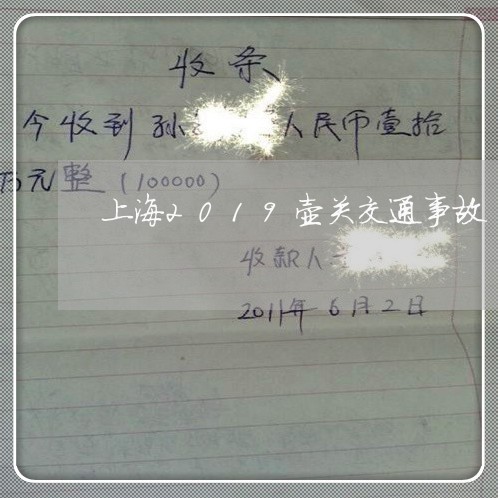 收条
今收到孙 人民币壹拾
万元整(100000)
上海2019壶关交通事故
收款人
2011年6月2日